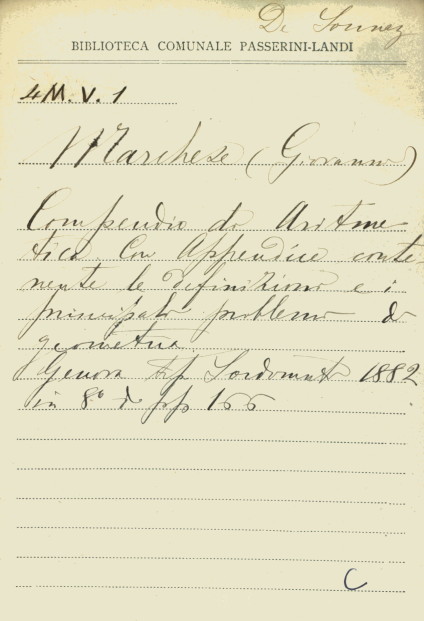 De
BIBLIOTECA COMUNALE PASSERINI-LANDI
4 M. V. 1
Marchese (Giovanni)
Compendio di Aritme
tica con Appendice conte
nente le definizioni e i
principali problemi di
geometria.
Genova tip Sordomuti 1882
in 8° di pp 166
C